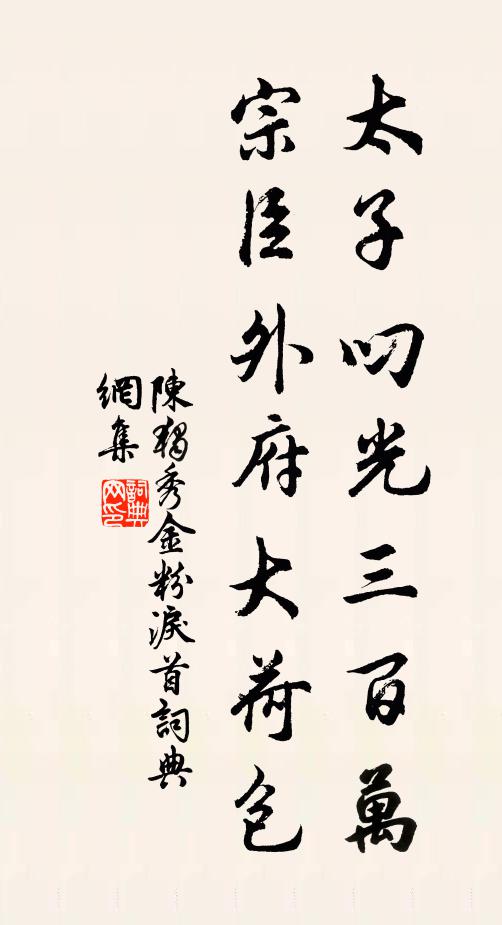 太子叨光三百萬
宗臣外府大荷包
陳獨秀金粉淚首詞典
網集
詞典
网印